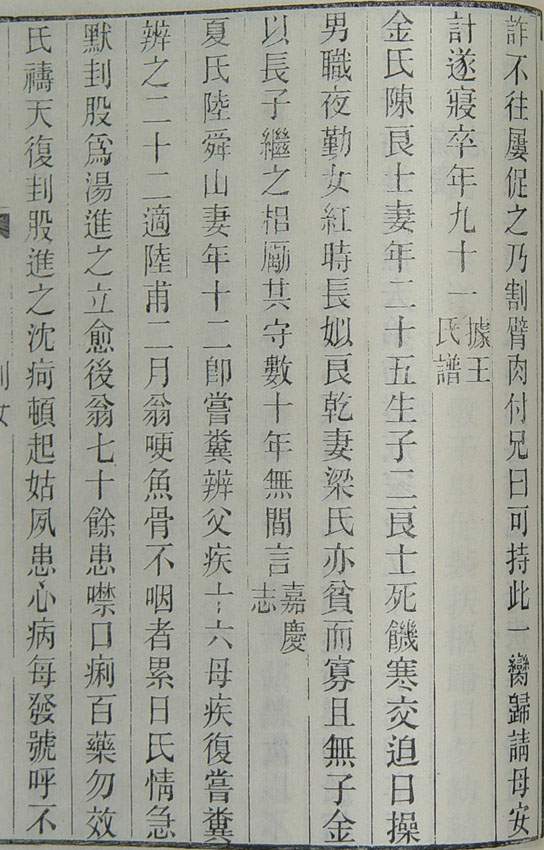 詐不往屢促之乃割臂肉付兄曰可持此一臠歸請母安
計遂寢卒年九十一據王氏譜
金氏陳良士妻年二十五生子二良士死饑寒交迫日操
男職夜勤女紅時長姒良乾妻梁氏亦貧而寡且無子金
以長子繼之相勵其守數十年無間言嘉慶志
夏氏陸舜山妻年十二卽嘗糞辨父疾十六母疾復嘗糞
辨之二十二適陸甫二月翁哽魚骨不咽者累日氏情急
默刲股爲湯進之立愈後翁七十餘患噤口痢百藥勿效
氏禱天復刲股進之沈疴頓起姑夙患心病每發號呼不